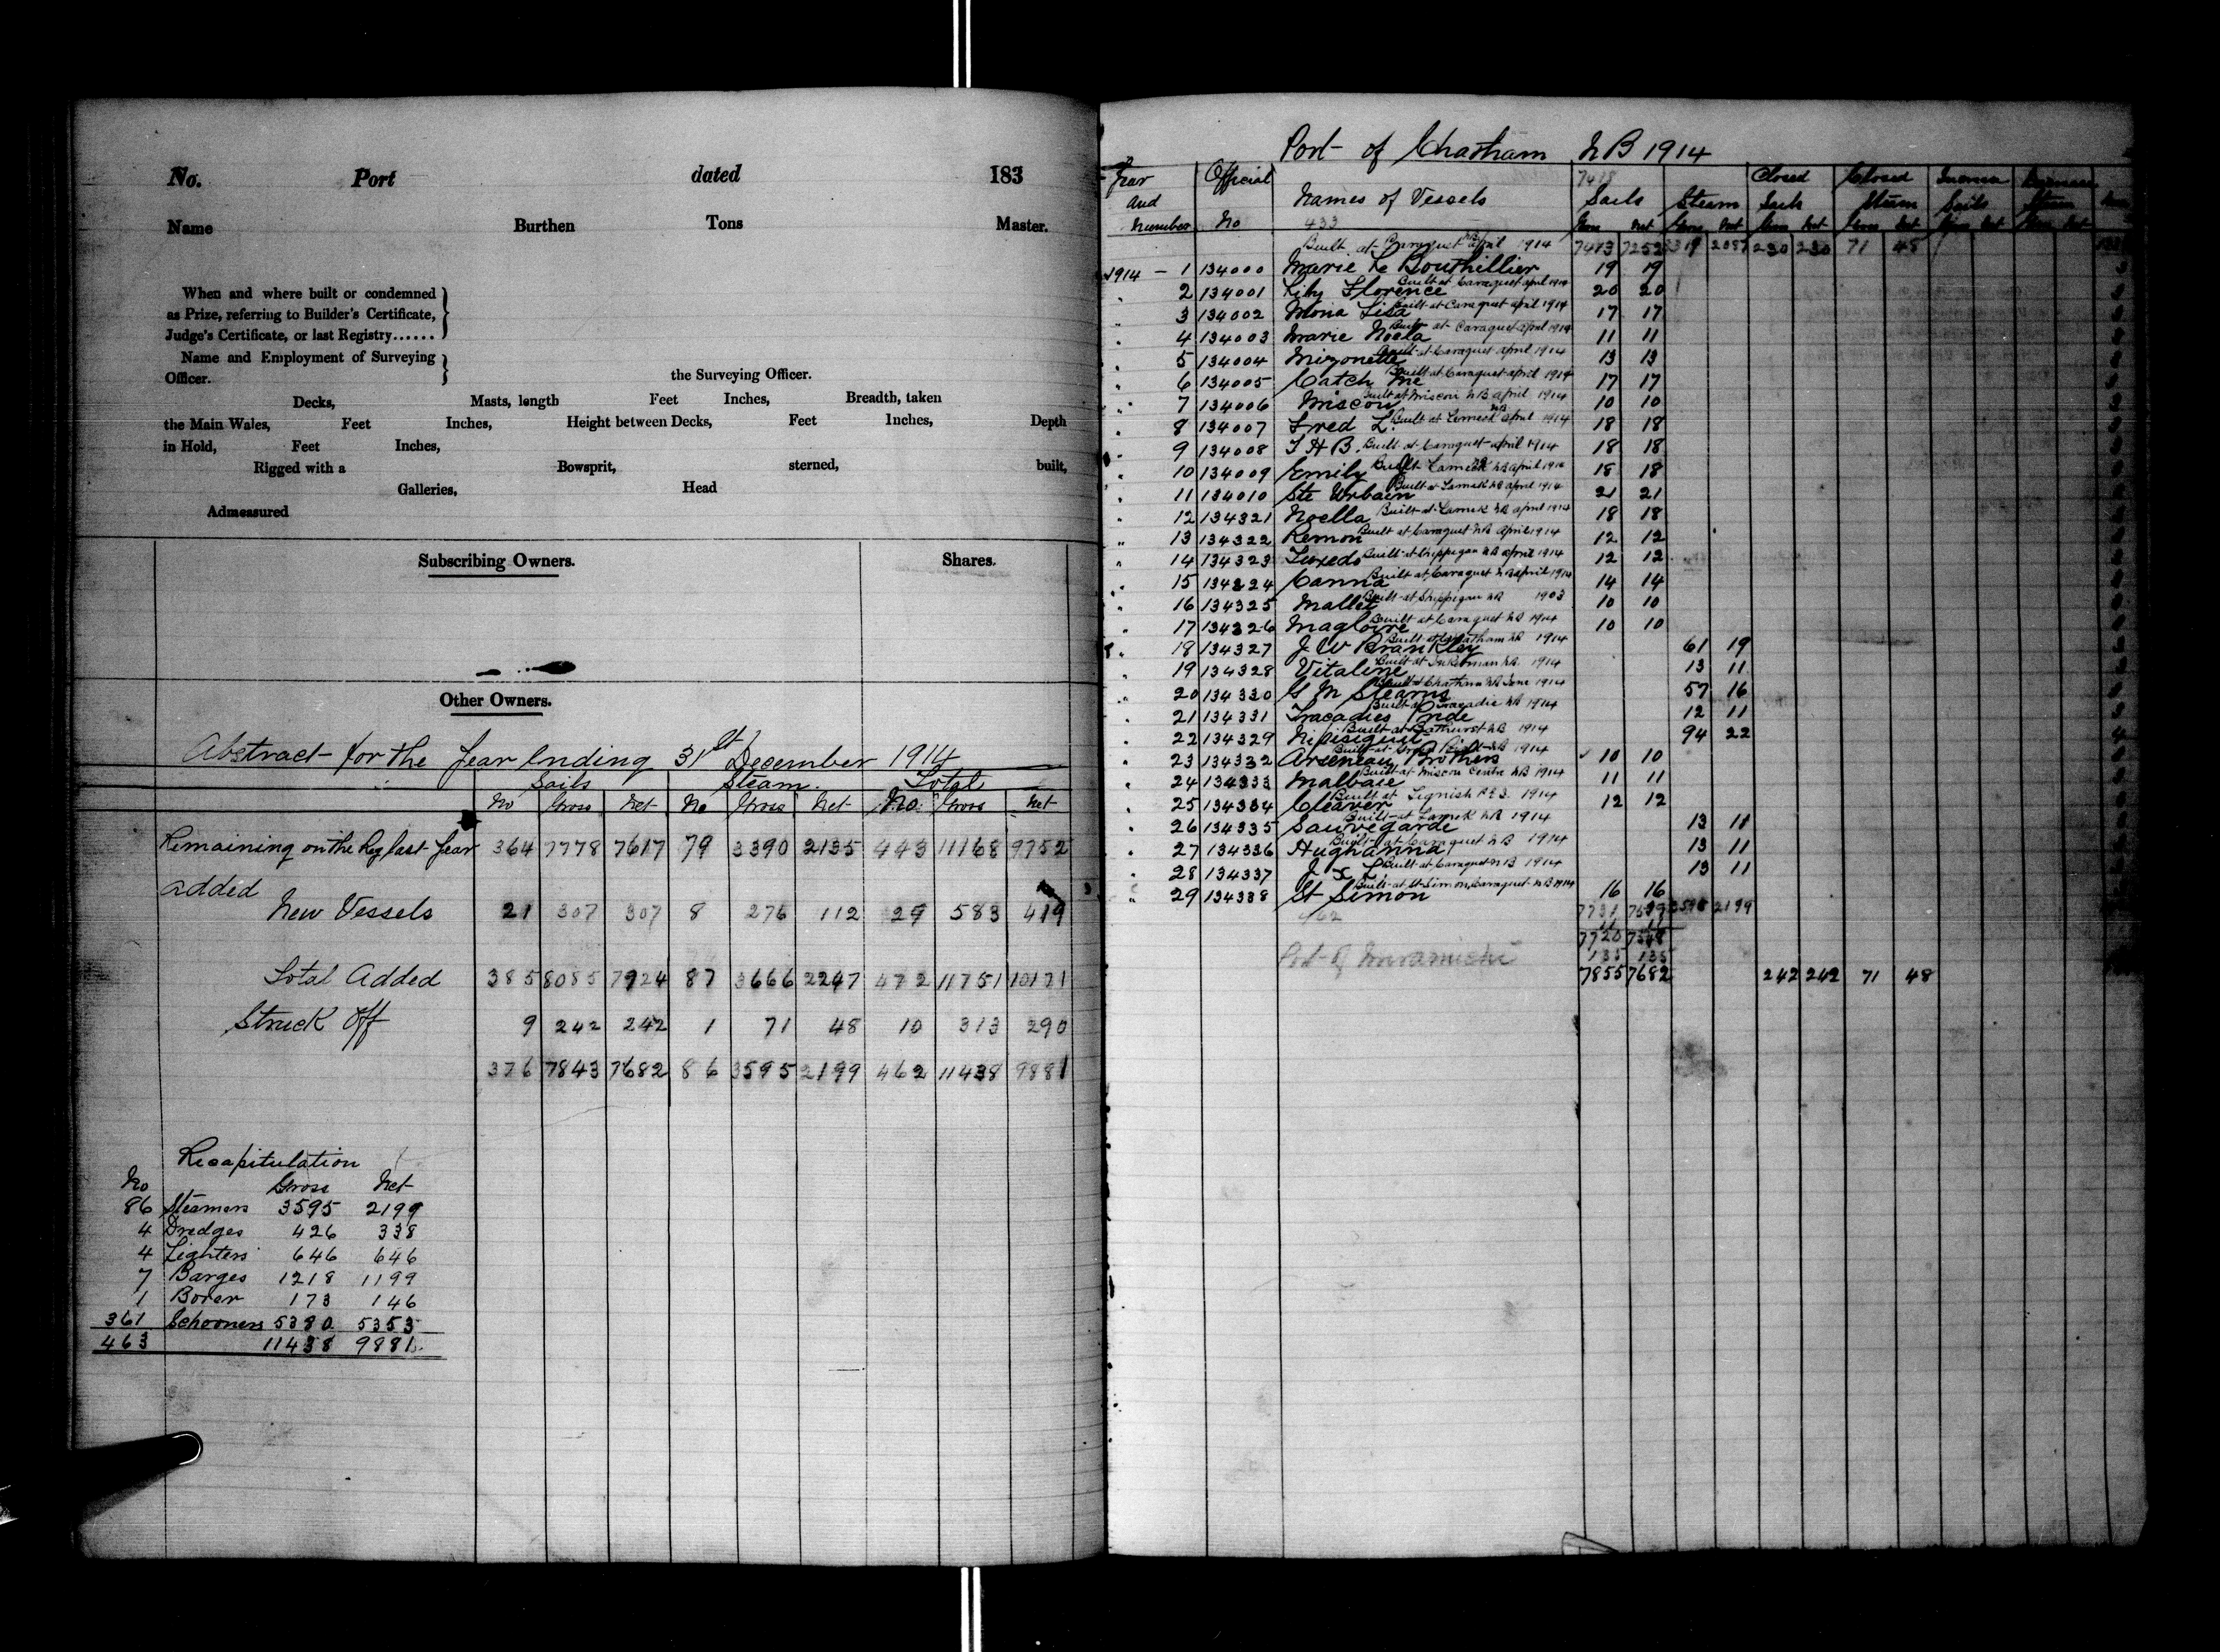 No. Port dated 183
Name Burthen Tons Master.
When and where built or condemned
as Prize, referring to Builder's Certificate,
Judge's Certificate, or last Registry......
Name and Employment of Surveying
Officer. the Surveying Officer.
Decks, Masts, length Feet Inches, Breadth, taken
the Main Wales, Feet Inches, Height between Decks, Feet Inches, Depth
in Hold, Feet Inches,
Rigged with a Bowsprit, sterned, built,
Galleries, Head
Admeasured
Subscribing Owners. Shares.
Other Owners.
Abstract for the Year Ending 31st December 1914
Sails Steam. Total
No Gross Net No Gross Net No. Gross Net
Remaining on the Reg last Year 364 7778 7617 79 3390 2135 443 11168 9752
added
New Vessels 21 307 307 8 276 112 29 583 419
Total Added 385 8085 7924 87 3666 2247 472 11751 10171
Struck Off 9 242 242 1 71 48 10 313 290
376 7843 7682 86 3595 2199 462 11438 9881
Recapitulation
No Gross Net
86 Steamers 3595 2199
4 Dredges 426 338
4 Lighters 646 646
7 Barges 1218 1199
1 Borer 173 146
361 Schooners 5380 5353
463 11438 9881
Port of Chatham NB 1914
Year Official 7418 Closed Closed
and Names of Vessels Sails Steam Sails Steam Sails Steam
Number No 433 Gross Net Gross Net Gross Net Gross Net
Built at Caraquet NB April 1914 7413 7252 3319 2087 230 230 71 48
1914 - 1 134000 Marie Le Bouthillier 19 19
" 2 134001 Lily Florence Built at Caraquet april 1914 20 20
" 3 134002 Mona Lisa Built at Caraquet april 1914 17 17
" 4 134003 Marie Noela Built at Caraquet april 1914 11 11
" 5 134004 Mizonette Built at Caraquet april 1914 13 13
" 6 134005 Catch Me Built at Caraquet april 1914 17 17
" 7 134006 Miscou Built at Miscou NB april 1914 10 10
" 8 134007 Fred L. Built at Lameck NB april 1914 18 18
" 9 134008 T H B. Built at Caraquet april 1914 18 18
" 10 134009 Emily Built Lameck NB april 1914 18 18
" 11 134010 Ste Urbain Built at Lamek NB april 1914 21 21
" 12 134321 Noella Built at Lamek NB april 1914 18 18
" 13 134322 Remon Built at Caraquet NB April 1914 12 12
" 14 134323 Tuxedo Built at Shippegan NB april 1914 12 12
" 15 134324 Canna Built at Caraquet NB april 1914 14 14
" 16 134325 Mallet Built at Shippegan NB 1903 10 10
" 17 134326 Magloire Built at Caraquet NB 1914 10 10
" 18 134327 J W Brankley Built at Chatham NB 1914 61 19
" 19 134328 Vitaline Built at Inkerman NB. 1914 13 11
" 20 134330 G M Stearns Built at Chatham NB June 1914 57 16
" 21 134331 Tracadies Pride Built at Tracadie NB 1914 12 11
" 22 134329 Nipisiguit Built at Bathurst NB 1914 94 22
" 23 134332 Arseneau Brothers Built at NB 1914 10 10
" 24 134333 Malbaie Built at Miscou Centre NB 1914 11 11
" 25 134334 Cleaver Built at Tignish P.E.I. 1914 12 12
" 26 134335 Sauvegarde Built at Lamek NB 1914 13 11
" 27 134336 Hughanna Built at Caraquet NB 1914 13 11
" 28 134337 J x L Built at Caraquet NB 1914 13 11
" 29 134338 St Simon Built at St Simon, Caraquet NB 1914 16 16
462 7731 7559 3595 2199
11 11
7720 7548
Port of Miramichi 135 135
7855 7682 242 242 71 48